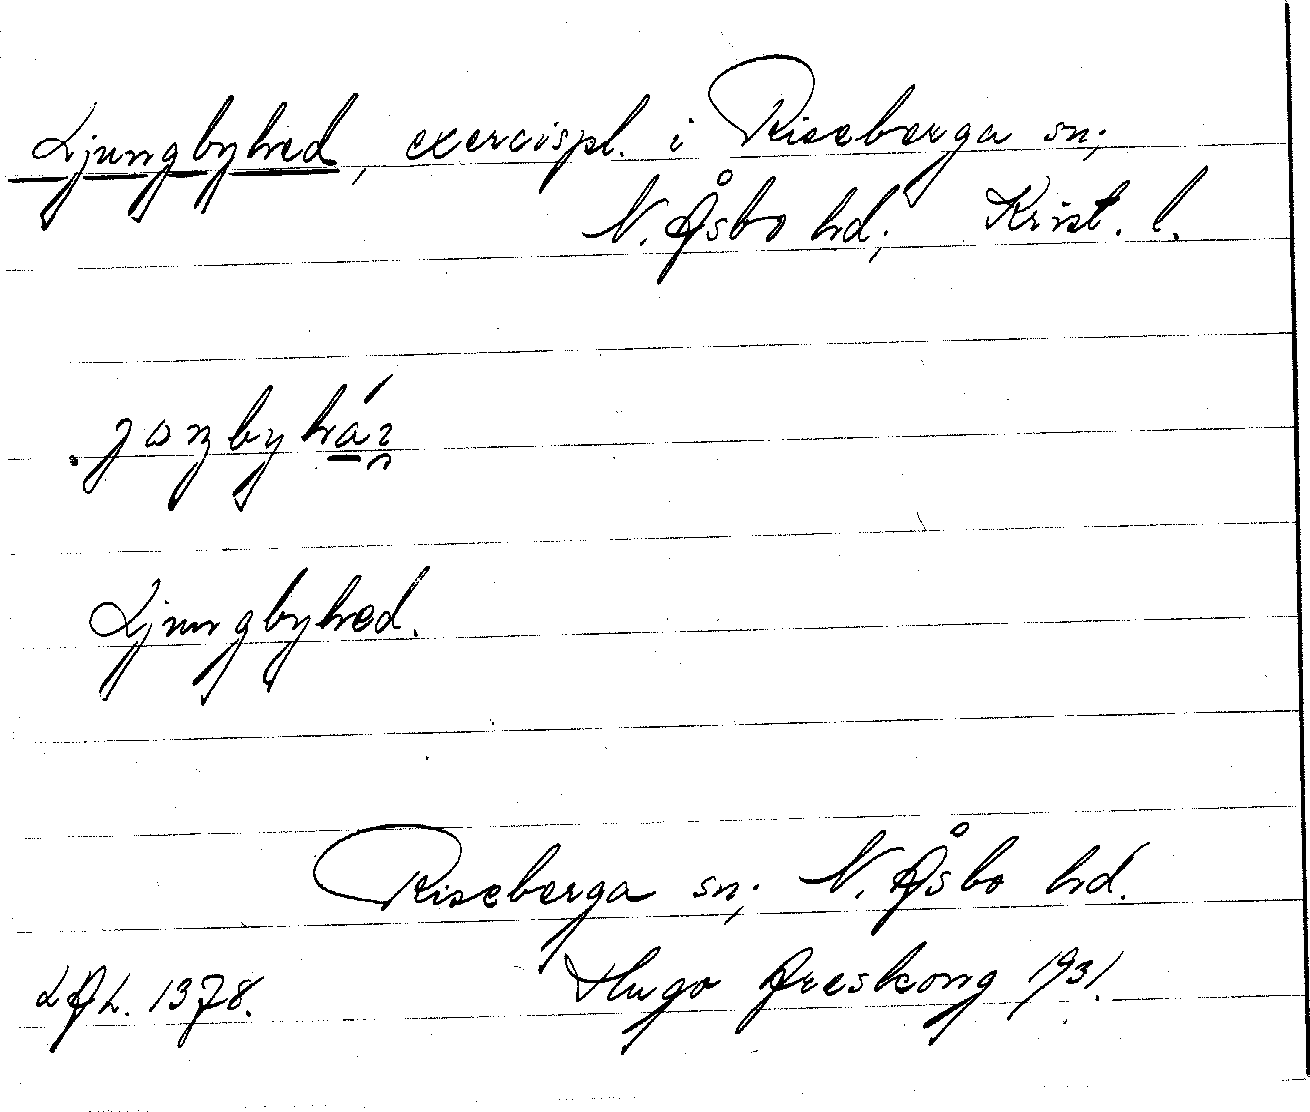 Ljungbyhed, exercispl. i Riseberga sn;
N. Åsbo hd; Krist. l.
Ljungbyhed.
Riseberga sn; N. Åsbo hd.
Hugo Areskoug 1931.
LAL. 1378.